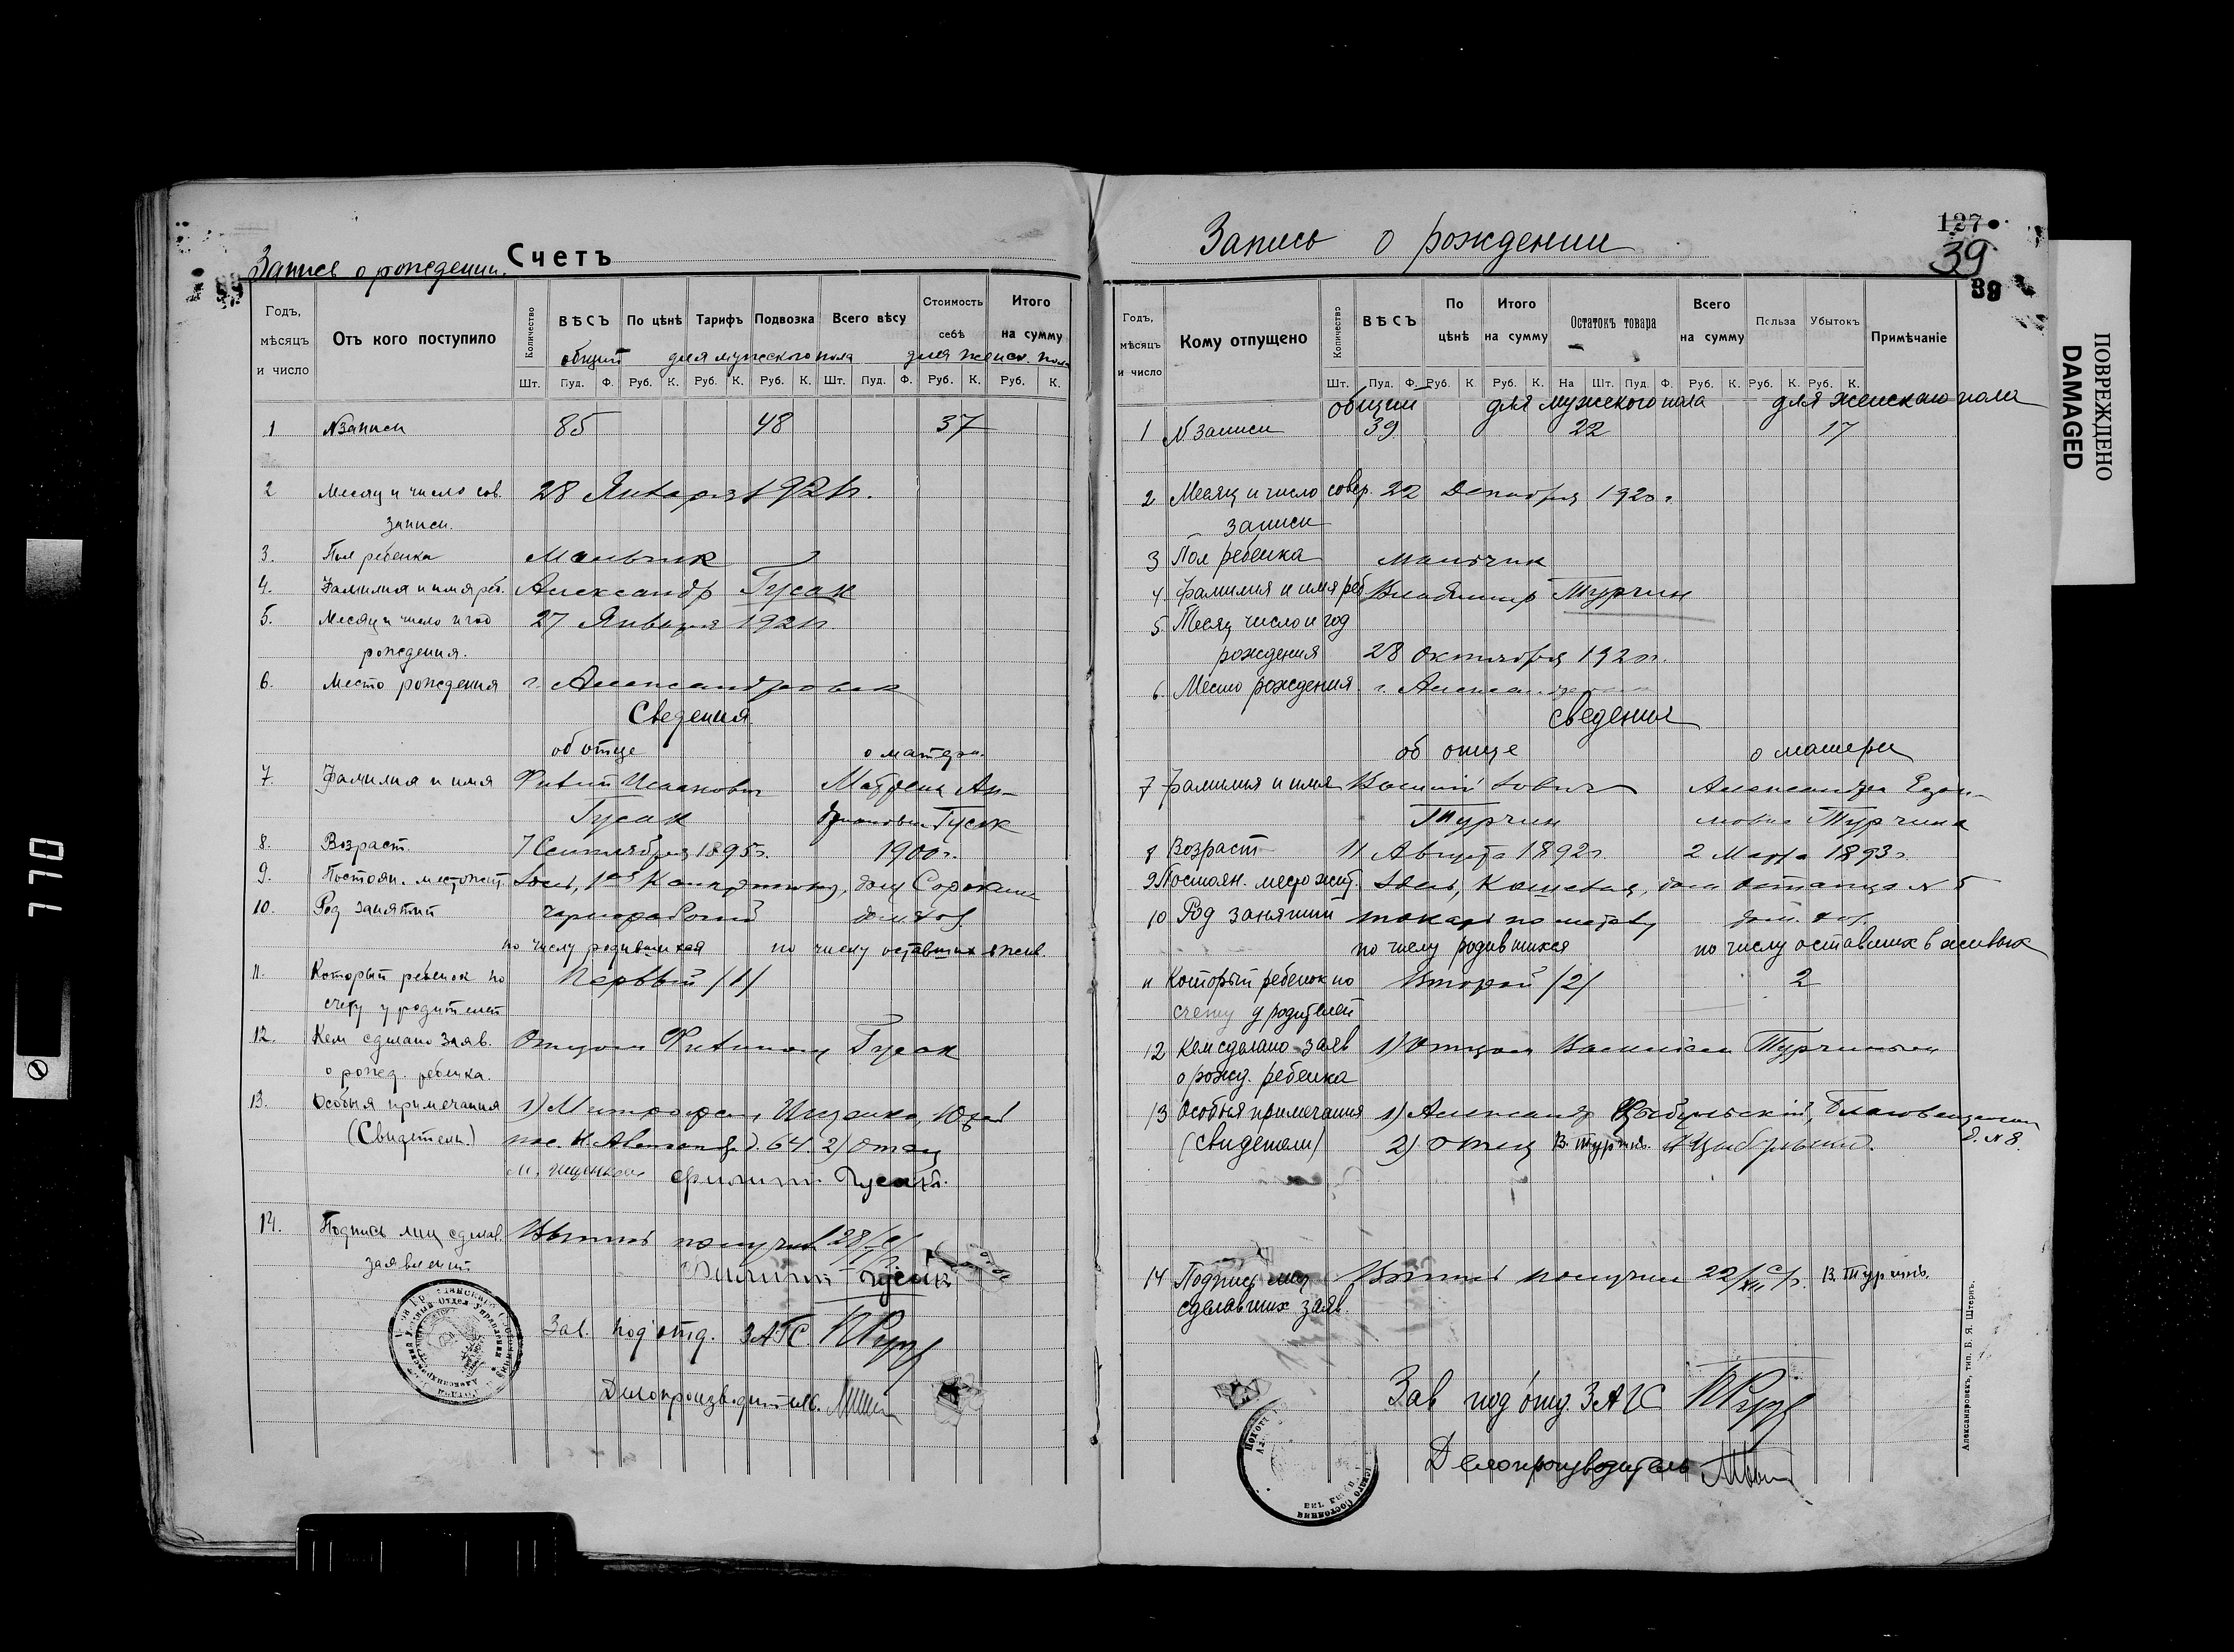 Запись о рождении. Счетъ
Годъ, мѣсяцъ и число
Отъ кого поступило
Количество
ВѢСЪ
По цѣнѣ
Тарифъ
Подвозка
Всего вѣсу
Стоимость себѣ
Итого на сумму
общий для мужского пола для женск. пола
Шт. Пуд. Ф. Руб. К. Руб. К. Руб. К. Шт. Пуд. Ф. Руб. К. Руб. К.
1 N записи 85 48 37
2 Месяц и число сов. 28 Января 1921 г.
записи.
3. Пол ребенка Мальчик
4. Фамилия и имя реб. Александр Гусак
5. Месяц и число и год 27 Января 1921 г.
рождения.
6. Место рождения г. Александровск
Сведения
об отце о матери.
7. Фамилия и имя Матрена Ан-
Гусак Гусак
8. Возраст. 7 Сентября 1895 г. 1900 г.
9. Постоян. местожит. дом Сорокина
10. Род занятий чернорабочий дом. хоз.
по числу родившихся по числу оставших в жив.
11. Который ребенок по Первый /1/
счету у родителей
12. Кем сделано заяв. Отцом Гусак
о рожд. ребенка.
13. Особыя примечания 1) Митрофан Ищенко,
(Свидетели.) д. 64. 2) Отец
М. Ищенко Филипп Гусакъ.
14. Подпись лиц сделав. получил 28/
заявлений. Филипп Гусакъ
Зав. под'отд. ЗАГС.
Делопроизводитель.
Запись о рождении
127
39
39
Годъ, мѣсяцъ и число
Кому отпущено
Количество
ВѢСЪ
По цѣнѣ
Итого на сумму
Остатокъ товара
Всего на сумму
Польза
Убытокъ
Примѣчаніе
Шт. Пуд. Ф. Руб. К Руб. К. На Шт. Пуд. Ф. Руб. К. Руб. К. Руб. К.
общий для мужского пола для женскаго пола
1 N записи 39 22 17
2 Месяц и число совер. 22 Декабря 1920 г
записи
3 Пол ребенка мальчик
4 Фамилия и имя реб Владимир Турчин
5 Месяц число и год
рождения 28 октября 1920 г.
6. Место рождения г. Александровск
сведения
об отце о матери
7 Фамилия и имя Александра
Турчин Турчина
8 Возраст 11 Августа 1892 г. 2 Марта 1893 г.
9 Постоян. место жит. N 5
10 Род занятий токарь по металу дом. хоз.
по числу родившихся по числу оставших в живых
11 Который ребенок по Второй /2/ 2
счету у родителей
12 Кем сделано заяв 1) Отцом Василием Турчиным
о рожд. ребенка
13 Особыя примечания 1) Александр Цыбульский,
(свидетели) 2) Отец В. Турчинъ. д. N 8.
14 Подпись лиц получил 22/XII В. Турчинъ.
сделавших заяв.
Зав под'отд. ЗАГС
Делопроизводитель
Александровскъ, тип. Б. Я. Штернъ.
ПОВРЕЖДЕНО
DAMAGED
770